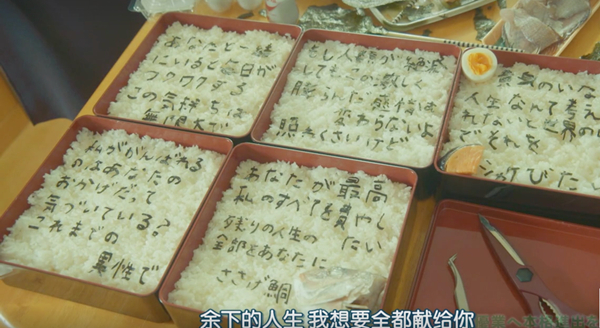 あなたと一緒
にいると毎日が
ワクワクする
この気持ちは
無限大で
もし人類が絶滅
してもこの激しく
膨らんだ感情は
変わらないよ
照れくさいけど
のいない
人生なんて考え
られないと
でそれを
シャケびたい
私ががんばれる
のはあなたの
おかげだって
気づいている?
これまでの
男性で
あなたが最高
私のすべてを費やし
たい
残りの人生の
全部をあなたに
ささげ鯛
余下的人生 我想要全都献给你